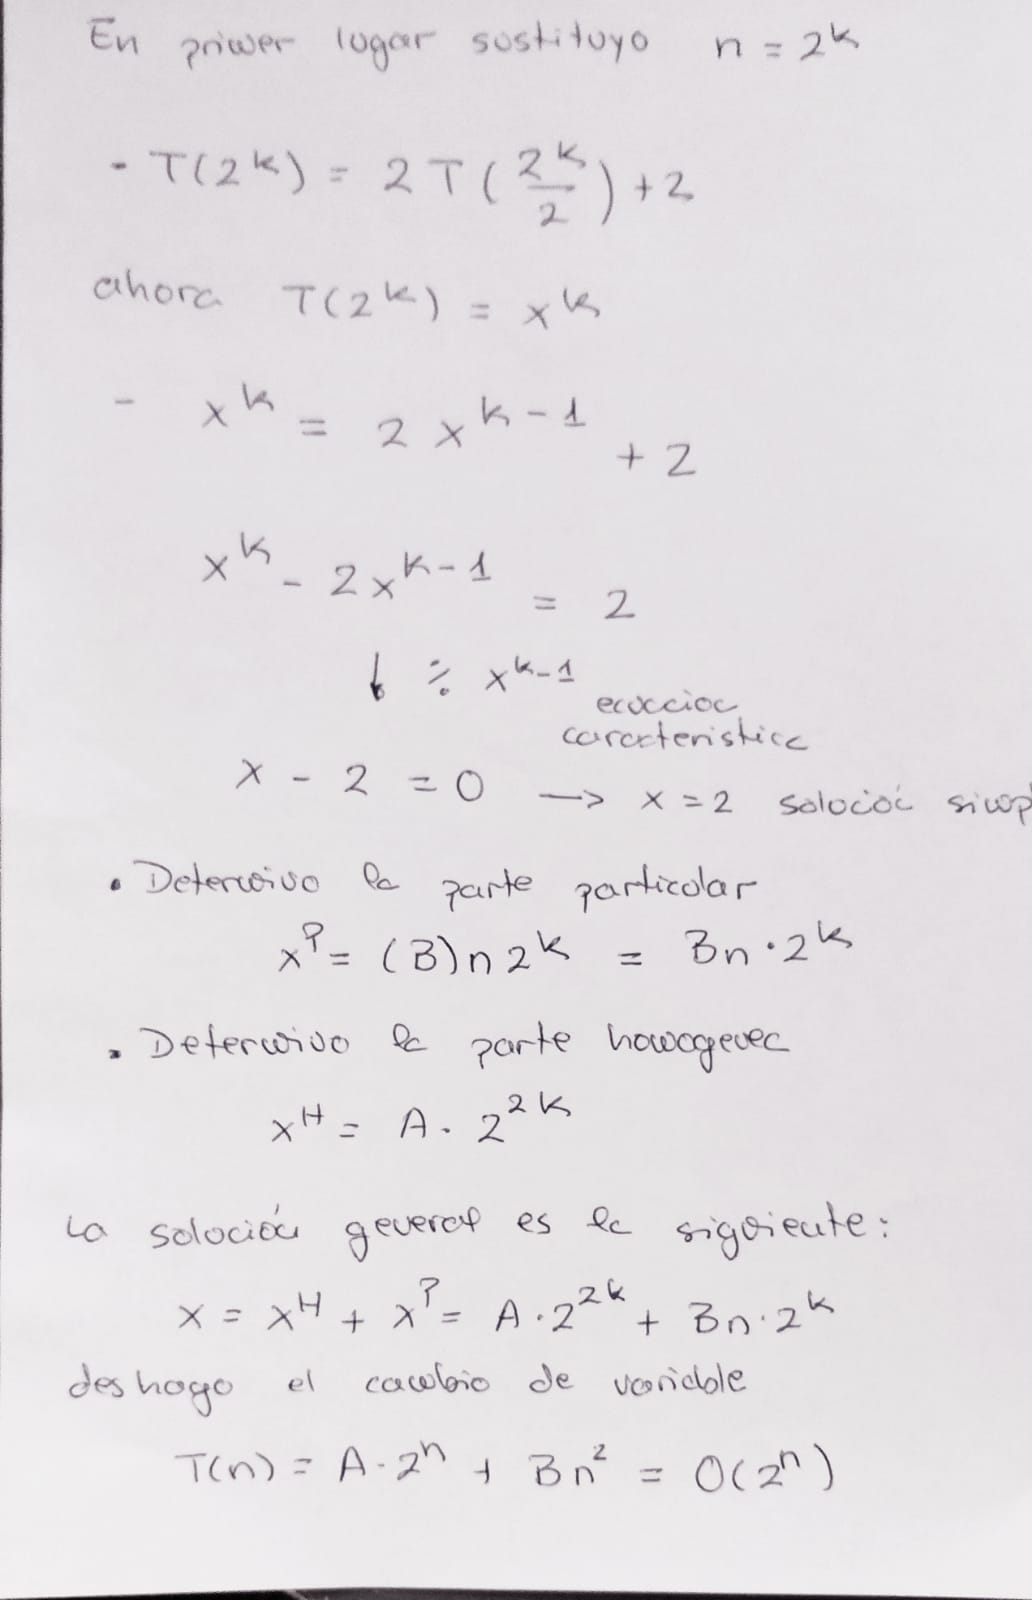 En primer lugar sustituyo n = 2^k
- T(2^k) = 2T(2^k/2) + 2
ahora T(2^k) = x^k
- x^k = 2x^{k-1} + 2
x^k - 2x^{k-1} = 2
↓ ÷ x^{k-1}
ecuación
característica
x - 2 = 0 → x = 2 solución simp
• Determino la parte particular
x^P = (B)n2^k = Bn·2^k
• Determino la parte homogenea
x^H = A·2^{2k}
La solución general es la siguiente:
x = x^H + x^P = A·2^{2k} + Bn·2^k
deshago el cambio de variable
T(n) = A·2^n + Bn^2 = O(2^n)